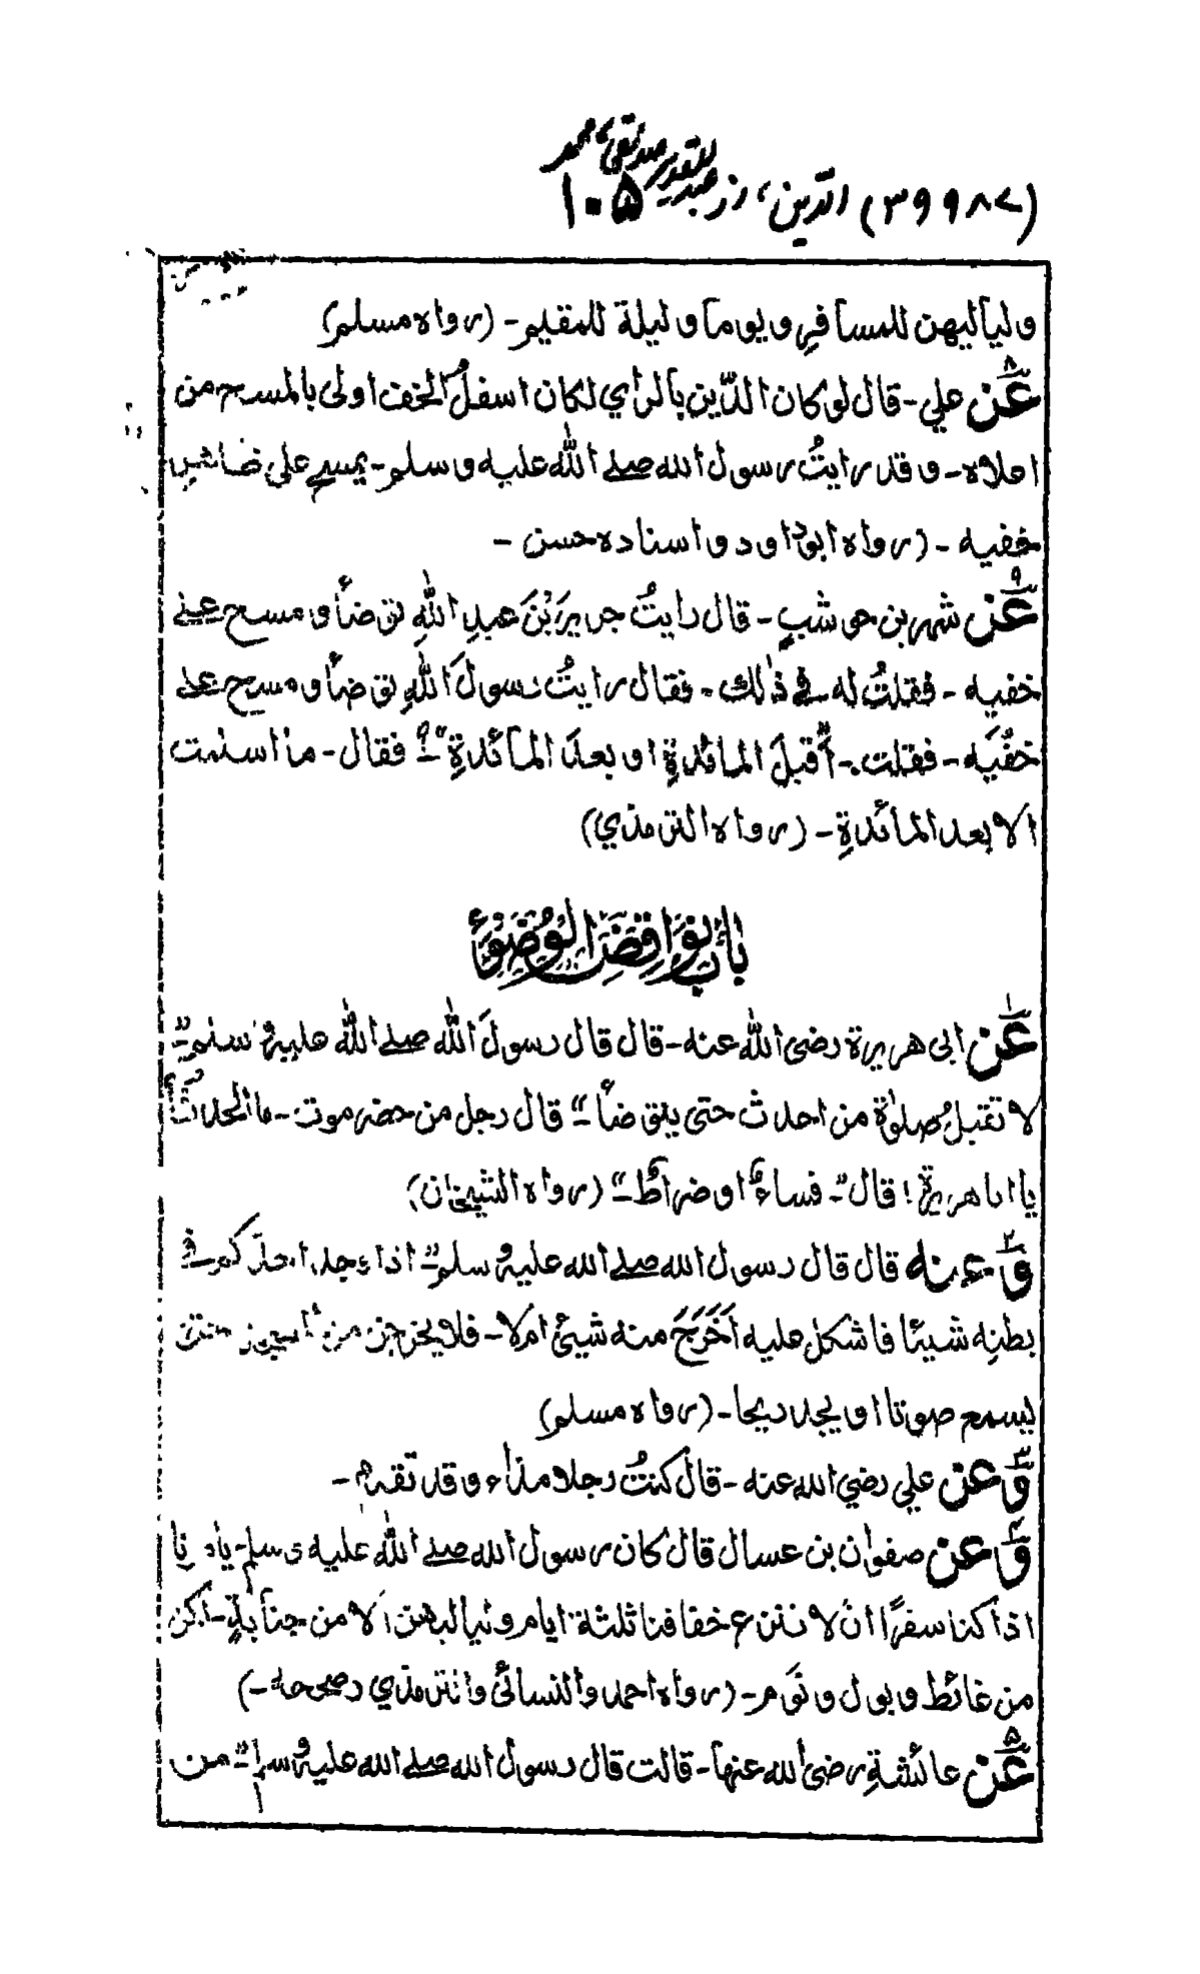 (٣٩٩٨٧) الدین، از عبدالقدیر صدیقی، محمد
١٠٥
ولياليهن للمسافر ويوما وليلة للمقيم - (رواه مسلم)
٨ عَن علي - قال لو كان الدّين بالرأي لكان اسفلُ الخف اولى بالمسح من
اعلاه - وقد رايتُ رسول الله صلے الله عليه وسلم - يمسح على ظاهر
خفيه - (رواه ابوداود واسناده حسن -
٩ عَن شهر بن حوشبٍ - قال رايتُ جريرَ بْنَ عبدِ اللهِ توضأ ومسح علے
خفيه - فقلتُ له في ذٰلك - فقال رايتُ رسولَ اللهِ توضأ ومسح على
خفَّيه - فقلت - "أقبلَ المائدةِ او بعدَ المائدةِ"؟ فقال - ما اسلمت
الا بعد المائدةِ - (رواه الترمذي)
بابُ نَوَاقِضِ الوُضُوْءِ
١ عَن ابى هريرة رضى الله عنه - قال قال رسولَ الله صلے الله عليه وسلم "
لا تقبلُ صلوٰة من احدث حتى يتوضأ" قال رجل من حضرموت - ما الحدثُ
يا ابا هريرة! قال " فساءٌ او ضراطٌ " (رواه الشيخان)
٢ وَعنه قال قال رسول الله صلے الله عليه وسلم " اذا وجد احدكم في
بطنِه شيئا فاشكل عليه اَخَرَجَ منه شيئٌ ام لا - فلا يخرجن من المسجد حتى
يسمع صوتا او يجد ريحا - (رواه مسلم)
٣ وَعن علي رضي الله عنه - قال كنتُ رجلا مذاء وقد تقدم -
٤ وَعن صفوان بن عسال قال كان رسول الله صلے الله عليه وسلم يامرنا
اذا كنا سفرًا ان لا ننزع خفافنا ثلثة ايام ولياليهن الا من جنابةٍ - لكن
من غائط وبول ونوم - (رواه احمد والنسائى والترمذي وصححه -)
٥ عَن عائشةِ رضى الله عنها - قالت قال رسول الله صلے الله عليه وسلم " من